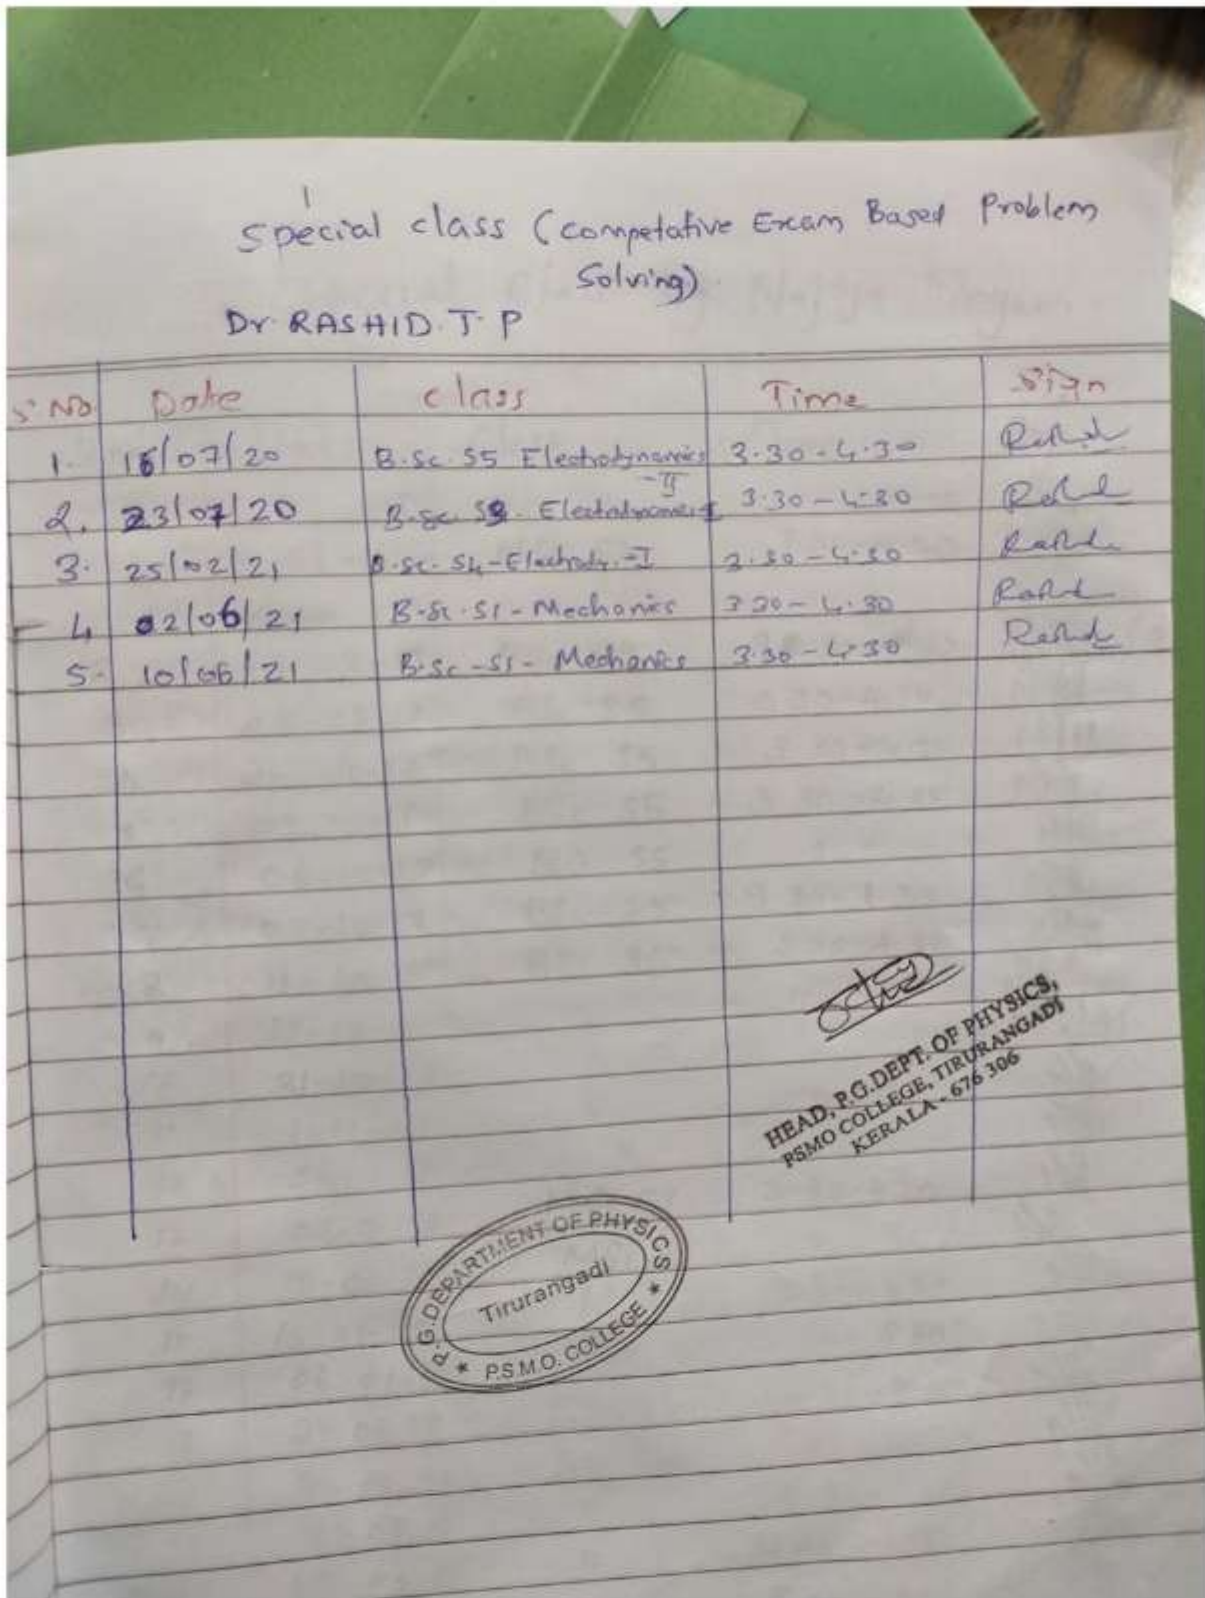 Special class (Competative Exam Based Problem
Solving)
Dr. RASHID. T. P
S No Date class Time Sign
1. 16/07/20 B.Sc. S5 Electrodynamics 3.30 - 4.30 Rashid
-II
2. 23/07/20 B.Sc. S5. 3.30 - 4.30 Rashid
3. 25/02/21 B.Sc. S4 - Electrody. - I 3.30 - 4.30 Rashid
4 02/06/21 B.Sc. S1 - Mechanics 3.30 - 4.30 Rashid
5. 10/06/21 B.Sc - S1 - Mechanics 3.30 - 4.30 Rashid
HEAD, P.G.DEPT. OF PHYSICS,
PSMO COLLEGE, TIRURANGADI
KERALA - 676 306
P.G.DEPARTMENT OF PHYSICS
Tirurangadi
★ P.S.M.O. COLLEGE ★